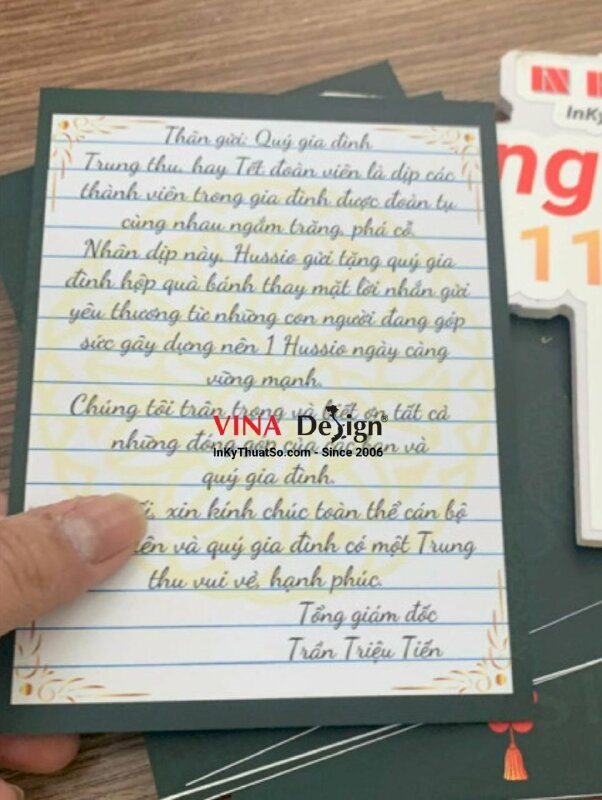 Thân gửi: Quý gia đình
Trung thu, hay Tết đoàn viên là dịp các
thành viên trong gia đình được đoàn tụ
cùng nhau ngắm trăng, phá cỗ.
Nhân dịp này, Hussio gửi tặng quý gia
đình hộp quà bánh thay mặt lời nhắn gửi
yêu thương từ những con người đang góp
sức gây dựng nên 1 Hussio ngày càng
vững mạnh.
Chúng tôi trân trọng và biết ơn tất cả
những đóng góp của các bạn và
quý gia đình.
xin kính chúc toàn thể cán bộ
và quý gia đình có một Trung
thu vui vẻ, hạnh phúc.
Tổng giám đốc
Trần Triệu Tiến
VINA Design®
InKyThuatSo.com - Since 2006
InKy
ng
11